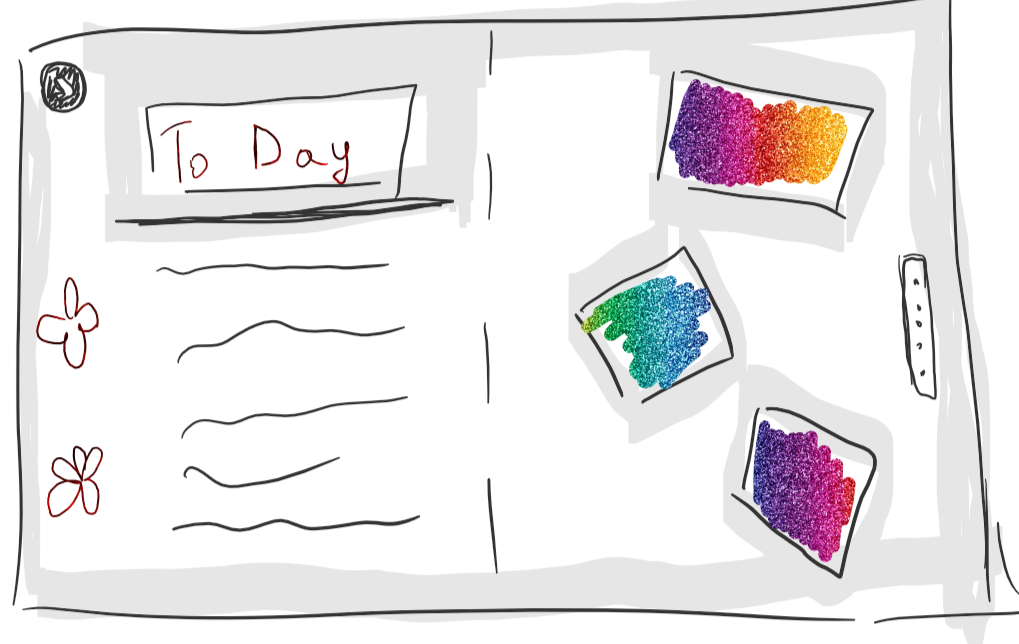 To Day